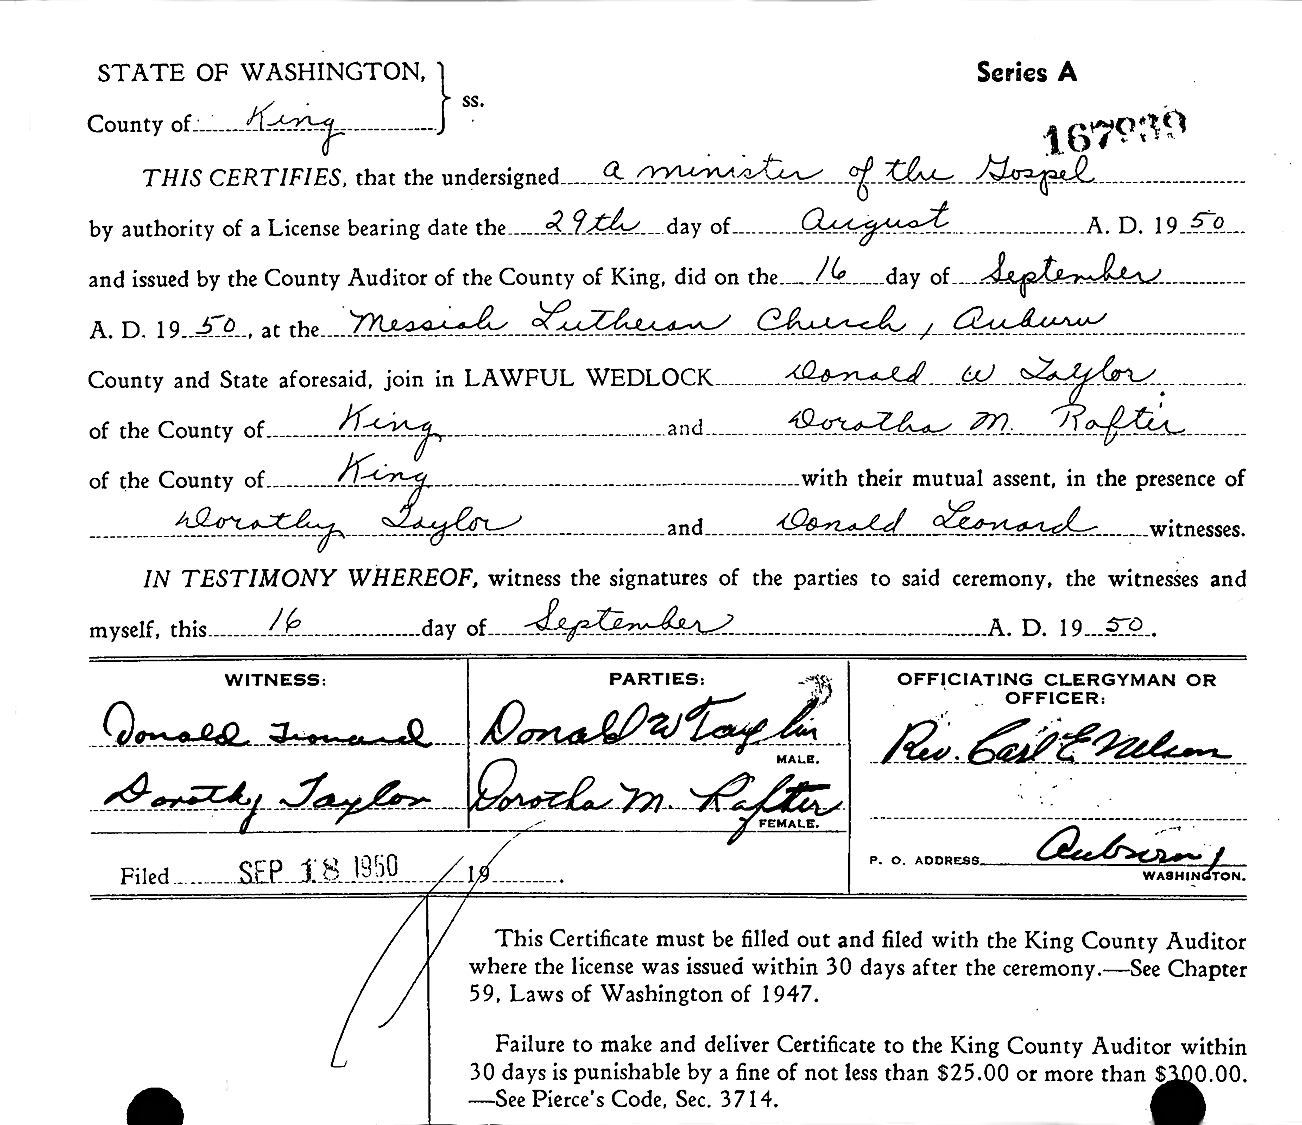 STATE OF WASHINGTON, } ss. Series A
County of King
167939
THIS CERTIFIES, that the undersigned a minister of the Gospel
by authority of a License bearing date the 29th day of August A. D. 19 50
and issued by the County Auditor of the County of King, did on the 16 day of September
A. D. 19 50, at the Messiah Lutheran Church, Auburn
County and State aforesaid, join in LAWFUL WEDLOCK Donald W Taylor
of the County of King and Dorotha M. Rafter
of the County of King with their mutual assent, in the presence of
Dorothy Taylor and Donald Leonard witnesses.
IN TESTIMONY WHEREOF, witness the signatures of the parties to said ceremony, the witnesses and
myself, this 16 day of September A. D. 19 50.
WITNESS: PARTIES: OFFICIATING CLERGYMAN OR
OFFICER:
Donald Leonard Donald W Taylor Rev. Carl E Nelson
MALE.
Dorothy Taylor Dorotha M Rafter
FEMALE.
P. O. ADDRESS Auburn,
WASHINGTON.
Filed SEP 18 1950 19 .
This Certificate must be filled out and filed with the King County Auditor
where the license was issued within 30 days after the ceremony.—See Chapter
59, Laws of Washington of 1947.
Failure to make and deliver Certificate to the King County Auditor within
30 days is punishable by a fine of not less than $25.00 or more than $300.00.
—See Pierce's Code, Sec. 3714.